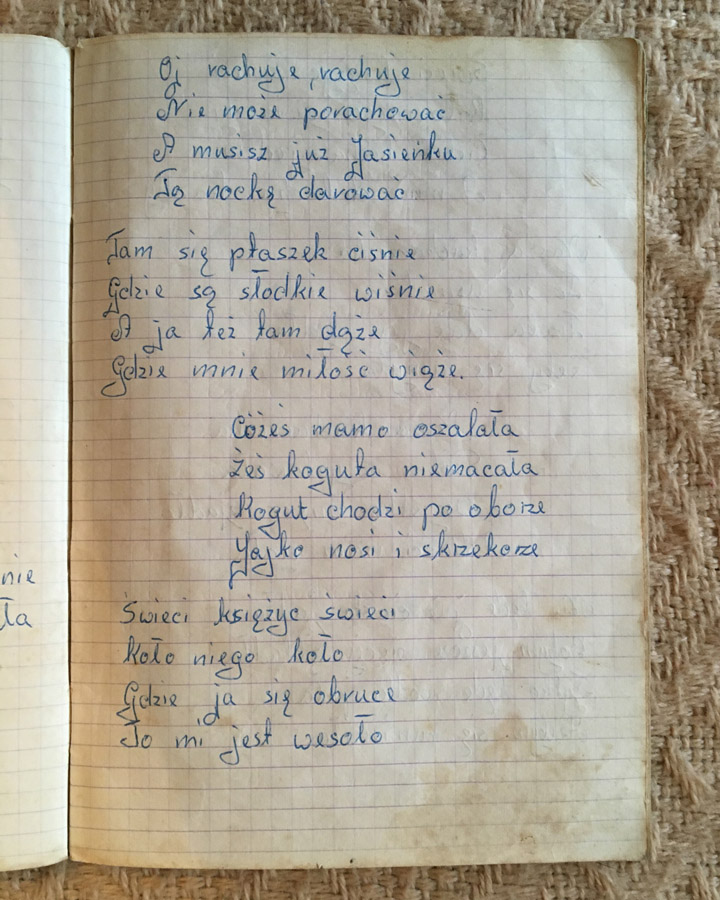 Oj rachuje, rachuje
Nie może porachować
A musisz już Jasieńku
Tą nockę darować
Tam się ptaszek ciśnie
Gdzie są słodkie wiśnie
A ja też tam dążę
Gdzie mnie miłość wiąże.
Cóżeś mamo oszalała
Żeś koguta niemacała
Kogut chodzi po oborze
Jajko nosi i skrzekorze
Świeci księżyc świeci
Koło niego koło
Gdzie ja się obruce
To mi jest wesoło
nie
ła